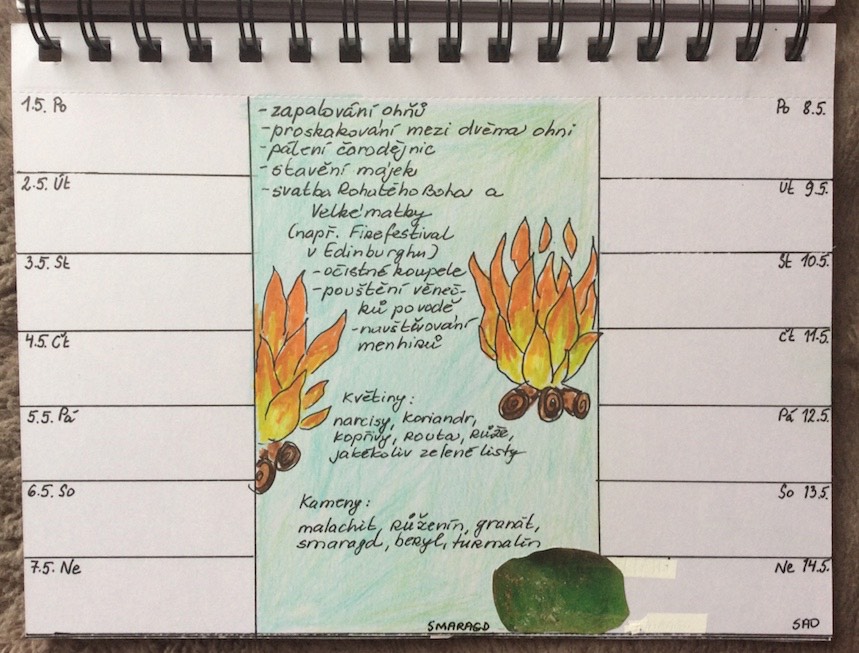 1.5. Po
2.5. Út
3.5. St
4.5. Čt
5.5. Pá
6.5. So
7.5. Ne
- zapalování ohňů
- proskakování mezi dvěma ohni
- pálení čarodějnic
- stavění májek
- svatba Rohatého Boha a
Velké matky
(např. Firefestival
v Edinburghu)
- očistné koupele
- pouštění věneč-
ků po vodě
- navštěvování
menhirů
Květiny:
narcisy, koriandr,
kopřivy, routa, růže,
jakékoliv zelené listy
Kameny:
malachit, růženín, granát,
smaragd, beryl, turmalín
SMARAGD
Po 8.5.
Út 9.5.
St 10.5.
Čt 11.5.
Pá 12.5.
So 13.5.
Ne 14.5.
SAD